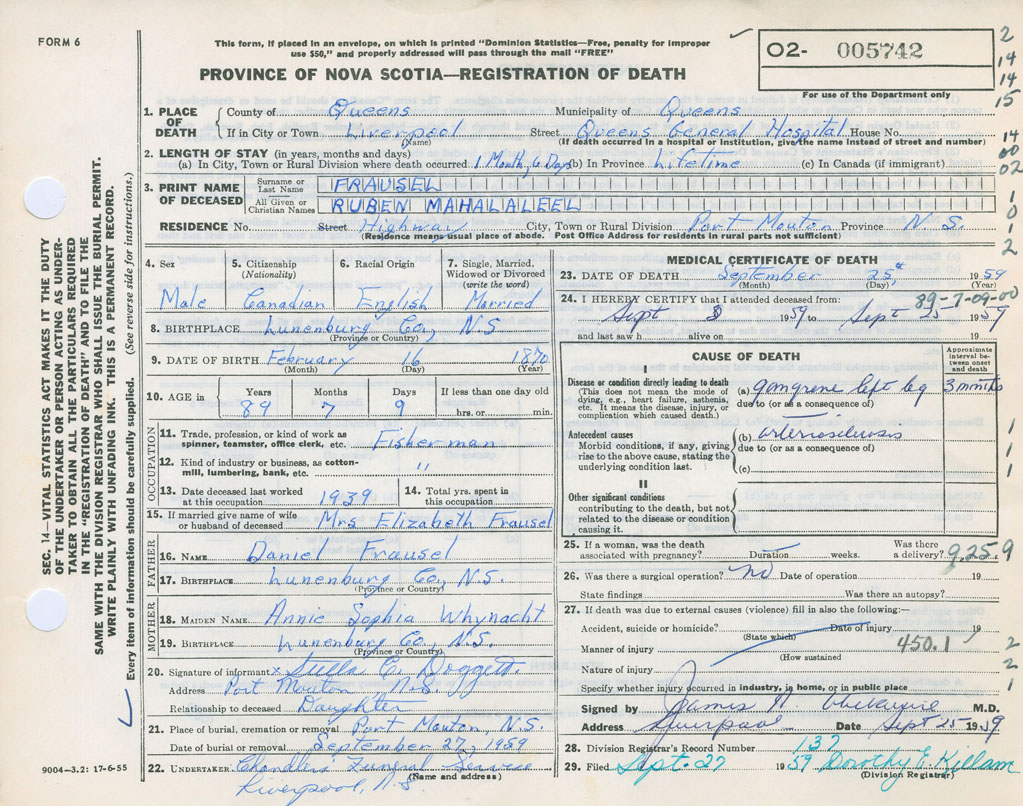 FORM 6
This form, if placed in an envelope, on which is printed "Dominion Statistics—Free, penalty for improper
use $50," and properly addressed will pass through the mail "FREE"
PROVINCE OF NOVA SCOTIA—REGISTRATION OF DEATH
02- 005742
For use of the Department only
2
14
14
15
14
00
02
1
0
1
2
SEC. 14—VITAL STATISTICS ACT MAKES IT THE DUTY
OF THE UNDERTAKER OR PERSON ACTING AS UNDER-
TAKER TO OBTAIN ALL THE PARTICULARS REQUIRED
IN THE "REGISTRATION OF DEATH" AND TO FILE THE
SAME WITH THE DIVISION REGISTRAR WHO SHALL ISSUE THE BURIAL PERMIT.
WRITE PLAINLY WITH UNFADING INK. THIS IS A PERMANENT RECORD.
Every item of information should be carefully supplied. (See reverse side for instructions.)
1. PLACE OF DEATH
County of Queens Municipality of Queens
If in City or Town Liverpool Street Queens General Hospital House No.
(Name) (If death occurred in a hospital or institution, give the name instead of street and number)
2. LENGTH OF STAY (in years, months and days)
(a) In City, Town or Rural Division where death occurred 1 Month, 6 Days (b) In Province Lifetime (c) In Canada (if immigrant)
3. PRINT NAME OF DECEASED
Surname or Last Name FRAUSEL
All Given or Christian Names RUBEN MAHALALEEL
RESIDENCE No. Street Highway City, Town or Rural Division Port Mouton Province N.S.
(Residence means usual place of abode. Post Office Address for residents in rural parts not sufficient)
4. Sex 5. Citizenship (Nationality) 6. Racial Origin 7. Single, Married, Widowed or Divorced (write the word)
Male Canadian English Married
8. BIRTHPLACE Lunenburg Co., N.S
(Province or Country)
9. DATE OF BIRTH February 16 1870
(Month) (Day) (Year)
10. AGE in Years Months Days If less than one day old
89 7 9 hrs. or min.
OCCUPATION
11. Trade, profession, or kind of work as spinner, teamster, office clerk, etc. Fisherman
12. Kind of industry or business, as cotton-mill, lumbering, bank, etc. "
13. Date deceased last worked at this occupation 1939 14. Total yrs. spent in this occupation
15. If married give name of wife or husband of deceased Mrs Elizabeth Frausel
FATHER
16. NAME Daniel Frausel
17. BIRTHPLACE Lunenburg Co., N.S.
(Province or Country)
MOTHER
18. MAIDEN NAME Annie Sophia Whynacht
19. BIRTHPLACE Lunenburg Co., N.S.
(Province or Country)
20. Signature of informant x Stella C. Doggett
Address Port Mouton N.S.
Relationship to deceased Daughter
21. Place of burial, cremation or removal Port Mouton, N.S.
Date of burial or removal September 27, 1959
22. UNDERTAKER Chandlers Funeral Service
(Name and address)
Liverpool, N.S.
9004-3.2: 17-6-55
MEDICAL CERTIFICATE OF DEATH
23. DATE OF DEATH September 25th 1959
(Month) (Day) (Year)
89-7-09-00
24. I HEREBY CERTIFY that I attended deceased from:
Sept 1959 to Sept 25 1959
and last saw h alive on 19
CAUSE OF DEATH
Approximate interval between onset and death
I
Disease or condition directly leading to death (a) gangrene left leg 3 months
(This does not mean the mode of dying, e.g., heart failure, asthenia, etc. It means the disease, injury, or complication which caused death.)
due to (or as a consequence of)
Antecedent causes (b) arteriosclerosis
Morbid conditions, if any, giving rise to the above cause, stating the underlying condition last.
due to (or as a consequence of)
(c)
1
1
1
II
Other significant conditions contributing to the death, but not related to the disease or condition causing it.
25. If a woman, was the death associated with pregnancy? Duration weeks. Was there a delivery?
9.25.9
26. Was there a surgical operation? no Date of operation 19
State findings Was there an autopsy?
27. If death was due to external causes (violence) fill in also the following:—
Accident, suicide or homicide? Date of injury 19
(State which)
Manner of injury 450.1 2
(How sustained)
Nature of injury 2
Specify whether injury occurred in industry, in home, or in public place 1
Signed by James M.D.
Address Liverpool Date Sept 25 1959
28. Division Registrar's Record Number 137
29. Filed Sept. 27 1959 Dorothy E. Killam
(Division Registrar)